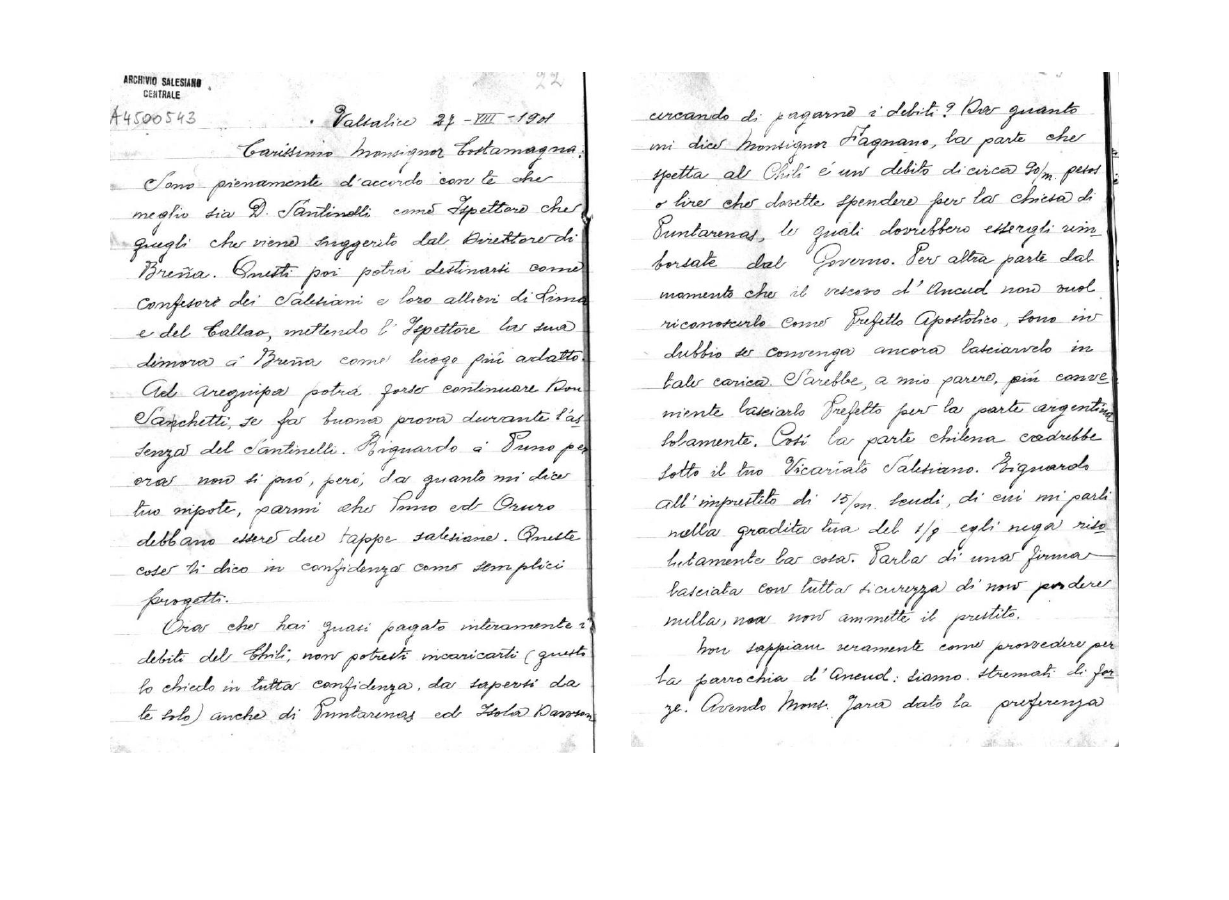 ARCHIVIO SALESIANO
CENTRALE
A4500543
22
Valsalice 27-VIII-1901
Carissimo Monsignor Costamagna:
Sono pienamente d'accordo con te che
meglio sia D. Santinelli come Ispettore che
quegli che viene suggerito dal Direttore di
Breña. Questi poi potrà destinarsi come
confesore dei Salesiani e loro allievi di Lima
e del Callao, mettendo l'Ispettore la sua
dimora á Breña come luogo più adatto.
Ad Arequipa potrà forse continuare Don
Sanchetti, se fa buona prova durante l'as-
senza del Santinelli. Riguardo á Puno per
ora non si può, però, da quanto mi dice
tuo nipote, parmi che Puno ed Oruro
debbano essere due tappe salesiane. Queste
cose ti dico in confidenza come semplici
progetti.
Ora che hai quasi pagato interamente i
debiti del Chilì, non potresti incaricarti (questo
lo chiedo in tutta confidenza, da sapersi da
te solo) anche di Puntarenas ed Isola Dawson
cercando di pagarne i debiti? Da quanto
mi dice Monsignor Fagnano, la parte che
spetta al Chilì é un debito di circa 90/m. pesos
o lire che dovette spendere per la chiesa di
Puntarenas, le quali dovrebbero essergli rim-
borsate dal Governo. Per altra parte dal
momento che il vescovo d'Ancud non vuol
riconoscerlo come Prefetto Apostolico, sono in
dubbio se convenga ancora lasciarvelo in
tale carica. Sarebbe, a mio parere, più conve-
niente lasciarlo Prefetto per la parte argentina
solamente. Così la parte chilena cadrebbe
sotto il tuo Vicariato Salesiano. Riguardo
all'imprestito di 15/m. scudi, di cui mi parli
nella gradita tua del 1/8 egli nega riso-
lutamente la cosa. Parla di una firma
lasciata con tutta sicurezza di non perdere
nulla, ma non ammette il prestito.
Non sappiam veramente come provvedere per
la parrochia d'Ancud: siamo stremati di for-
ze. Avendo Mons. Jara dato la preferenza